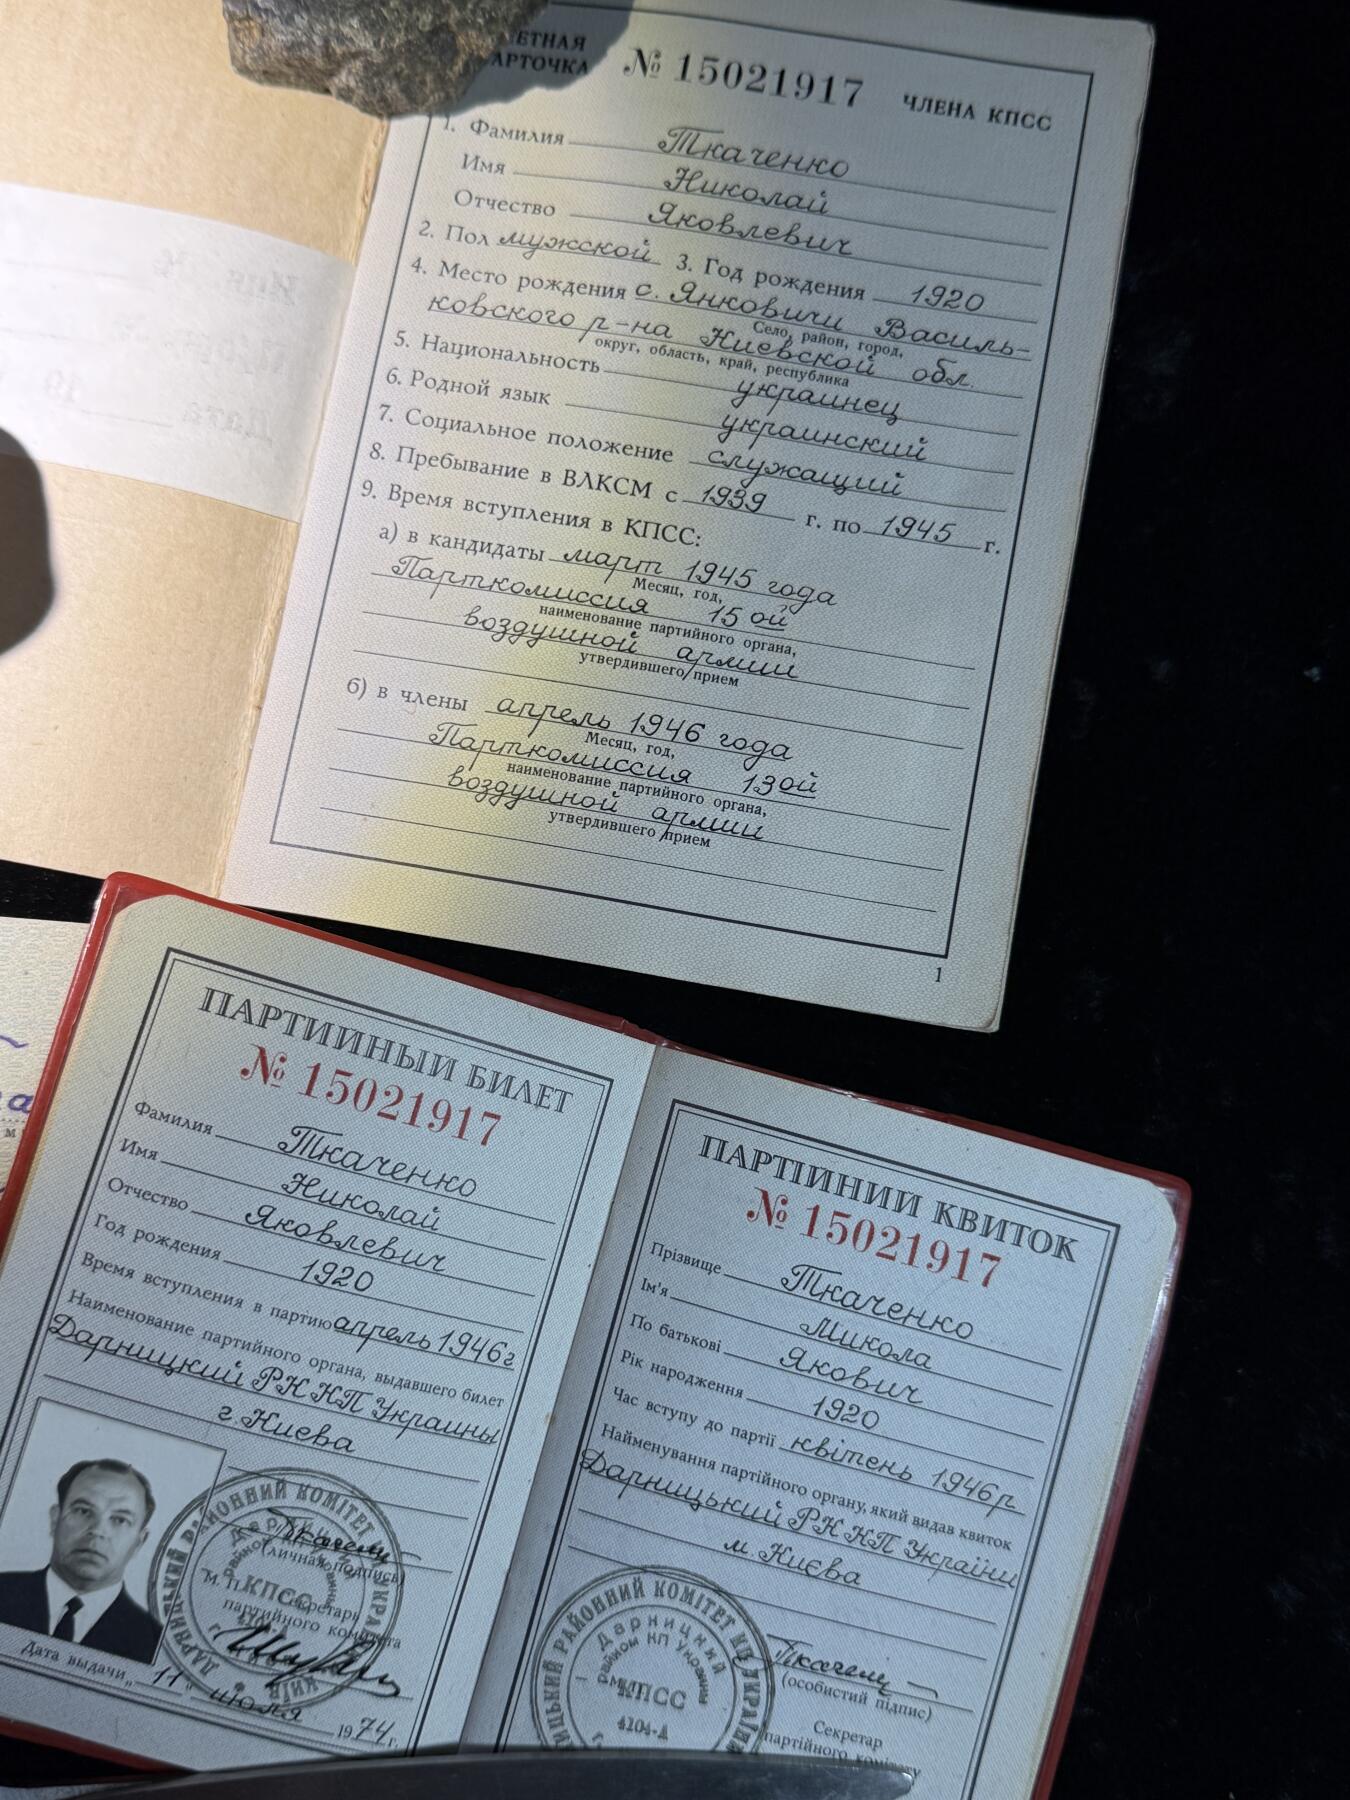 ЕТНАЯ
АРТОЧКА № 15021917 ЧЛЕНА КПСС
1. Фамилия Ткаченко
Имя Николай
Отчество Яковлевич
2. Пол мужской 3. Год рождения 1920
4. Место рождения с. Янковичи Василь-
Село, район, город,
ковского р-на Киевской обл.
округ, область, край, республика
5. Национальность украинец
6. Родной язык украинский
7. Социальное положение служащий
8. Пребывание в ВЛКСМ с 1939 г. по 1945 г.
9. Время вступления в КПСС:
а) в кандидаты март 1945 года
Месяц, год,
Парткомиссия 15ой
наименование партийного органа,
воздушной армии
утвердившего прием
б) в члены апрель 1946 года
Месяц, год,
Парткомиссия 13ой
наименование партийного органа,
воздушной армии
утвердившего прием
1
ПАРТИЙНЫЙ БИЛЕТ
№ 15021917
Фамилия Ткаченко
Имя Николай
Отчество Яковлевич
Год рождения 1920
Время вступления в партию апрель 1946г
Наименование партийного органа, выдавшего билет
Дарницкий РК КП Украины
г. Киева
(личная подпись)
М. П. Секретарь
партийного комитета
КПСС
Дата выдачи „11“ июля 1974 г.
ПАРТІЙНИЙ КВИТОК
№ 15021917
Прізвище Ткаченко
Ім'я Микола
По батькові Якович
Рік народження 1920
Час вступу до партії квітень 1946р
Найменування партійного органу, який видав квиток
Дарницький РК КП України
м. Києва
(особистий підпис)
Секретар
партійного комітету
РАЙОННИЙ КОМІТЕТ КП УКРАЇНИ
Дарницкий
район КП Украины
КПСС
4204-А